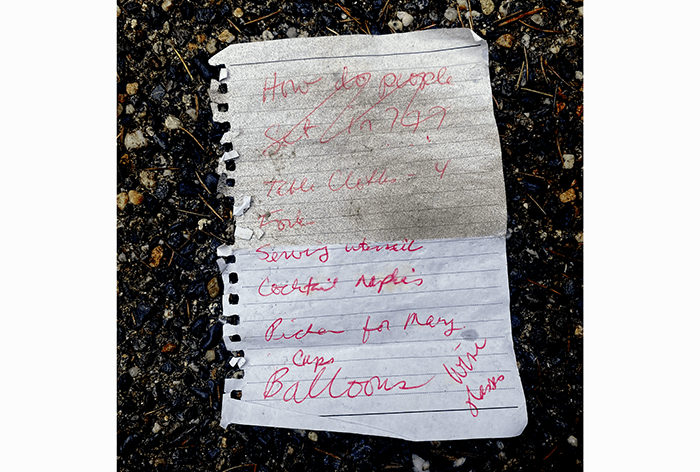 How do people
Get in ???
Table Cloths - 4
Serving utensil
Cocktail napkins
Picher for Mary
Cups
Balloons
wine
glasses